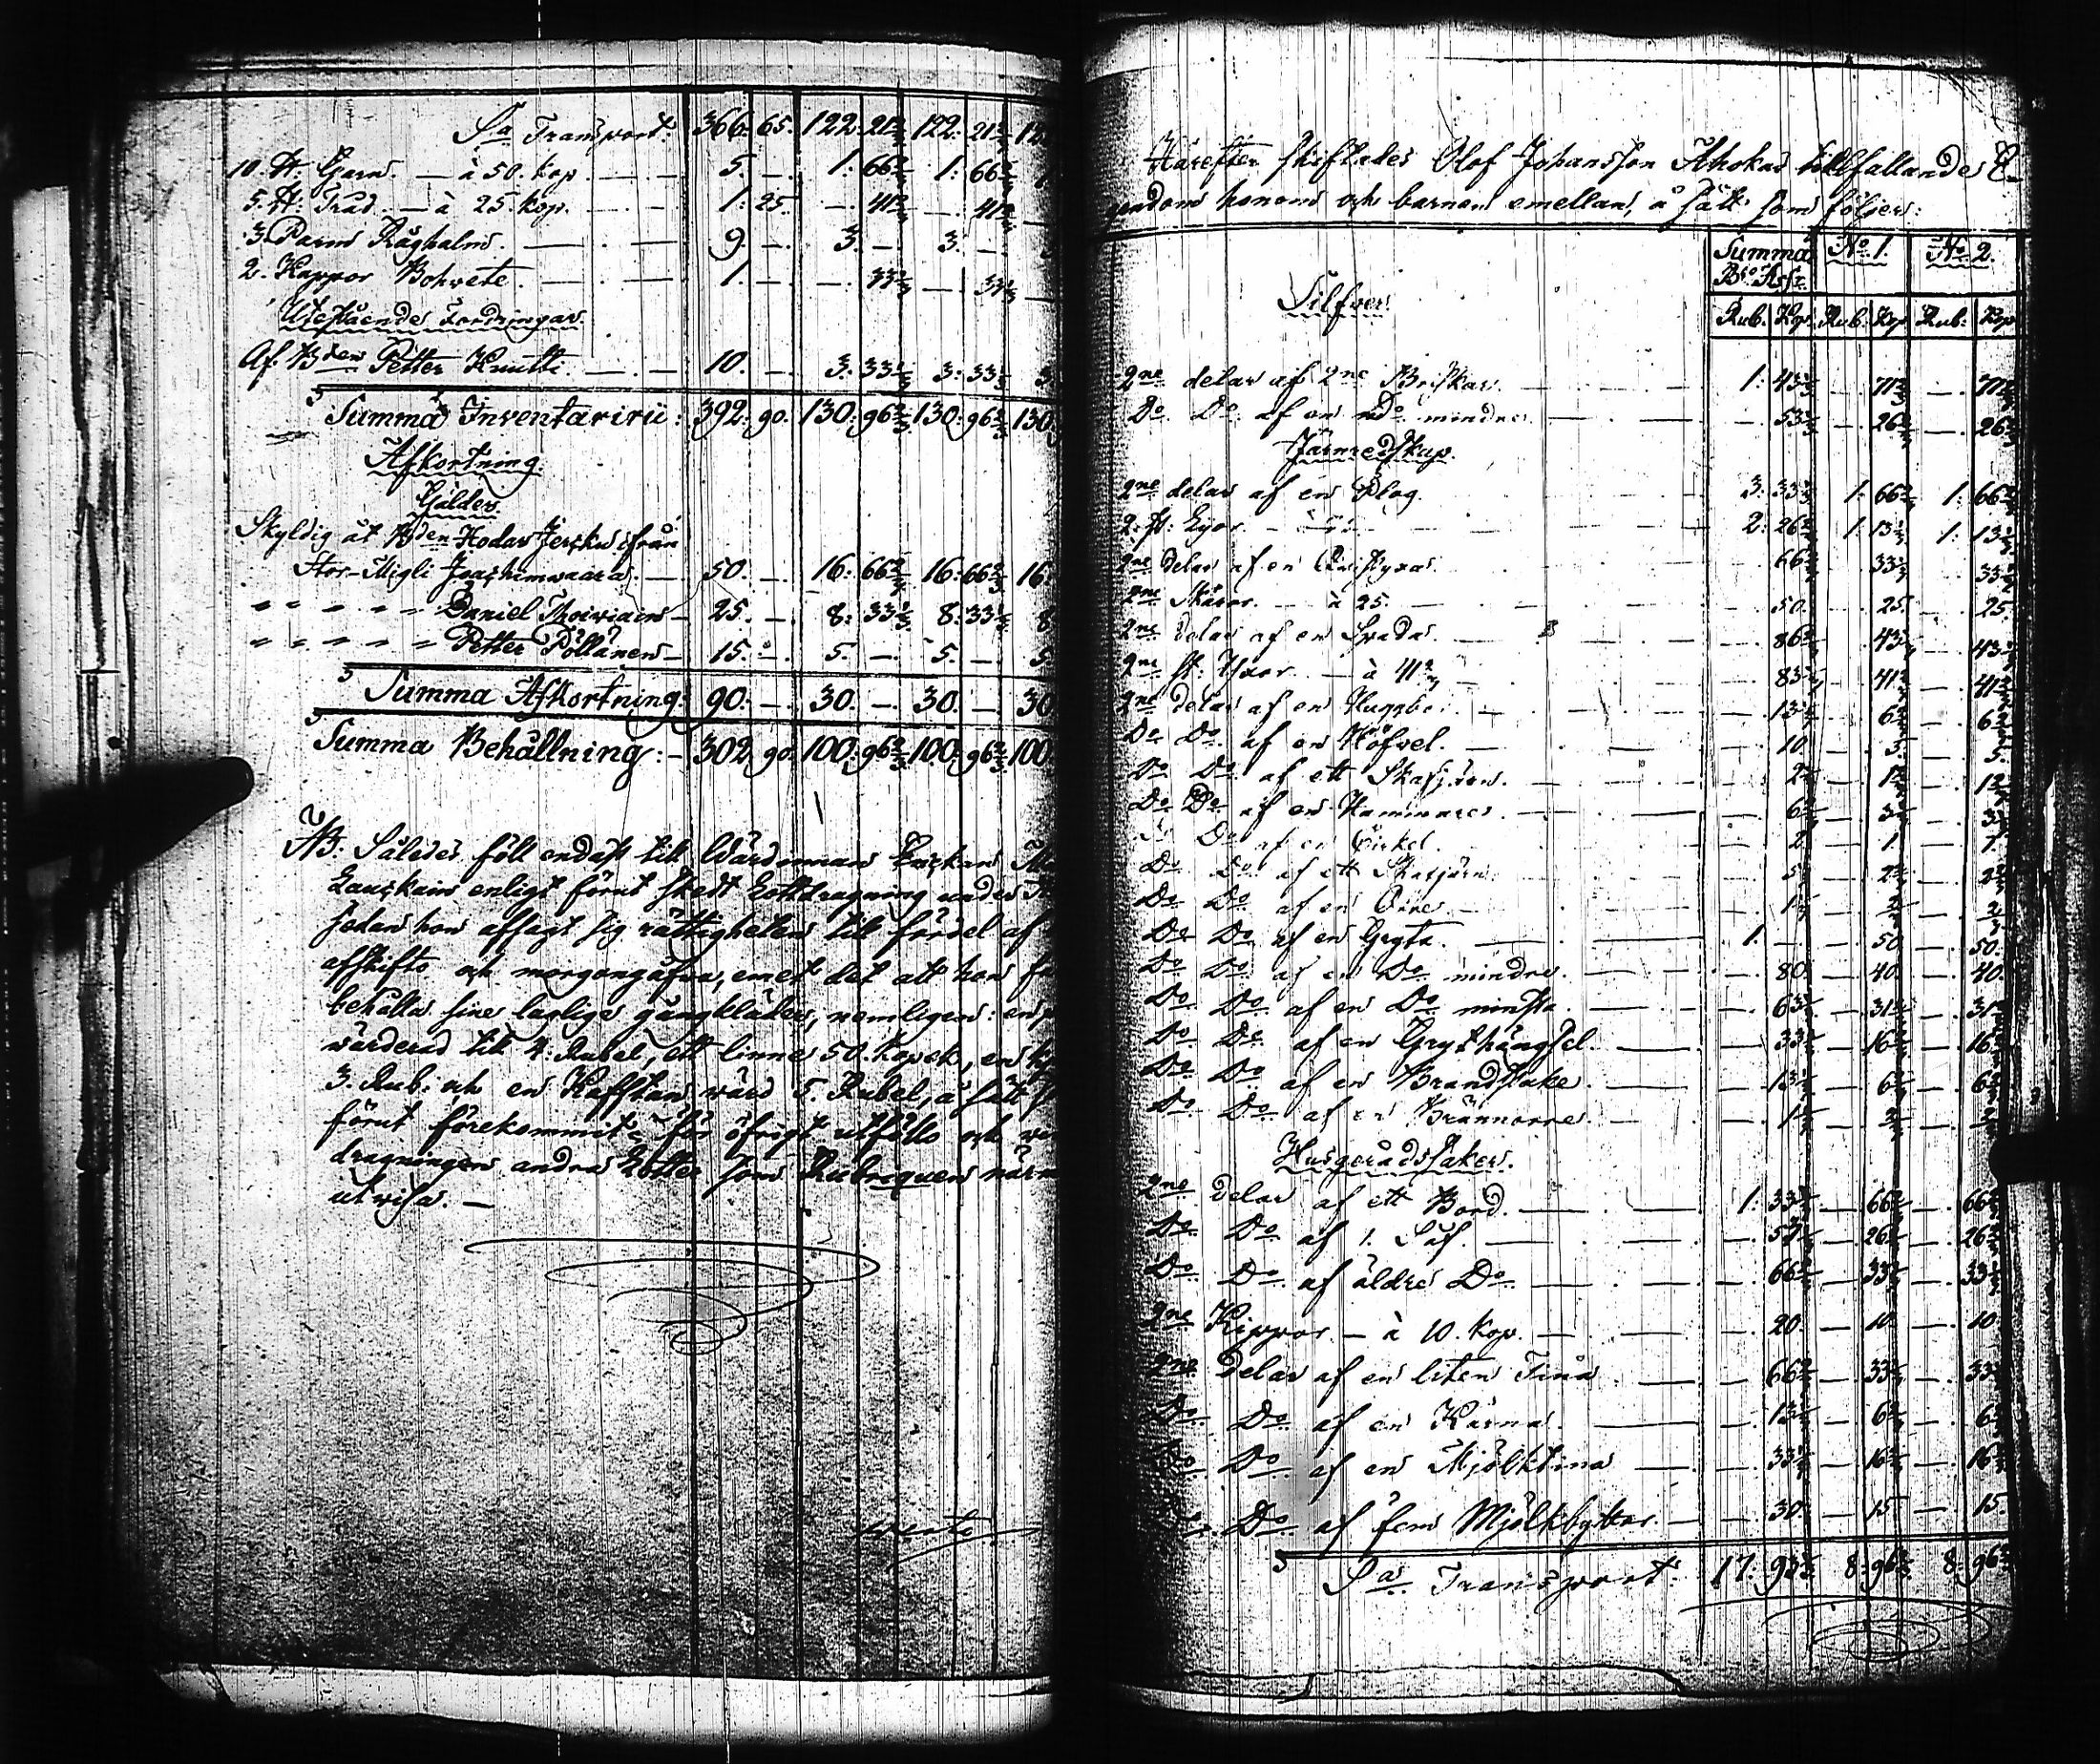 Sa Transport: 366: 65. 122: 21 2/3 122: 21 2/3 12
10. ℔: Garn. — à 50. kop. — 5. — 1: 66 2/3 1: 66 2/3
5. ℔: Tråd. — à 25. kop. — 1: 25. — 41 2/3 — 41 2/3
3. Parm Råghalm. — 9. — 3. — 3. —
2. Kappor Bohvete. — 1. — — 33 1/3 — 33 1/3
Utestående Fordringar
Af Bden Petter Knutti. — 10. — 3: 33 1/3 3: 33 1/3 3
Summa Inventarirü: 392: 90. 130: 96 2/3 130: 96 2/3 130
Afkortning.
Gälder
Skyldig åt Bden Hodar Jerskin från
Stor-Migli Joachimwaara. — 50. — 16: 66 2/3 16: 66 2/3 16:
" " " " " Daniel — 25. — 8: 33 1/3 8: 33 1/3 8
" " " " " Petter Pöllänen — 15. — 5. — 5. — 5
Summa Afkortning: 90. — 30. — 30. — 30
Summa Behållning: — 302. 90. 100: 96 2/3 100: 96 2/3 100
NB. Således föll endast till Wärdinnan
enligt förut skedt Lottdragning under
sedan hon afsagt sig rättigheten till fördel af
afskifto och morgongåfva, emot det att hon
behålla sine laglige gångkläder, nemligen: en
värderad till 4. Rubel, ett linne 50. kopek, en
3. Rub: och en Kafftan värd 5. Rubel, å sätt
förut förekommit; för öfrigt utfölls och
dragningen andra Lotter som Rubriquen närm
utvisa. —
verte
Härefter skiftades Olof Johansson Ahokas tillfallande E-
gendom honom och barnen emellan, å sätt som följer:
Summa No 1. No 2.
Bco Assr
Rub. Kop. Rub: Kop Rub: Kop
Silfver.
2ne delar af 2ne Briskar. — 1: 43 1/3 — 71 2/3 — 71 2/3
Do Do af en Do mindre — — 53 1/3 — 26 2/3 — 26 2/3
Järnredskap.
2ne delar af en Plog. — 3: 33 1/3 1: 66 2/3 1: 66 2/3
2. st: — 2: 26 2/3 1: 13 1/3 1: 13 1/3
2ne delar af en — 66 2/3 — 33 1/3 — 33 1/3
2ne Skäror. — à 25. — 50. — 25. — 25.
2ne delar af en Spada. — 86 2/3 — 43 1/3 — 43 1/3
2ne st: Yxor. — à 41 2/3 — 83 1/3 — 41 2/3 — 41 2/3
2ne delar af en — 13 1/3 — 6 2/3 — 6 2/3
Do Do af en Höfvel. — 10 — 5. — 5.
Do Do af ett Skafjärn. —
Do Do af en Hammare. — 6 2/3 — 3 1/3 — 3 1/3
Do af en Cirkel. — 2. — 1 — 1.
Do Do af ett
Do Do af en
Do Do af en Gryta. — 1. — — 50 — 50.
Do Do af en Do mindre. — 80. — 40. — 40.
Do Do af en Do minsta. — 63 1/3 — 31 2/3 — 31 2/3
Do Do af en Grythängsel. — 33 1/3 — 16 2/3 — 16 2/3
Do Do af en Brandstake. — 13 1/3 — 6 2/3 — 6 2/3
Do Do af en — 1 1/3 — 2/3 — 2/3
Husgerådssaker.
2ne delar af ett Bord. — 1: 33 1/3 — 66 2/3 — 66 2/3
Do Do af 1. — 26 2/3 — 26 2/3
Do Do af äldre Do — 66 2/3 — 33 1/3 — 33 1/3
2ne Kippor — à 10. kop. — 20. — 10 — 10
2ne delar af en liten Tina — 66 2/3 — 33 1/3 — 33 1/3
Do Do af en Kärna. — 13 1/3 — 6 2/3 — 6 2/3
Do Do af en Mjölktina — 33 1/3 — 16 2/3 — 16 2/3
Do af fem Mjölkbyttor. — 30. — 15 — 15
Sa Transport: 17: 93 1/3 8: 96 2/3 8: 96 2/3